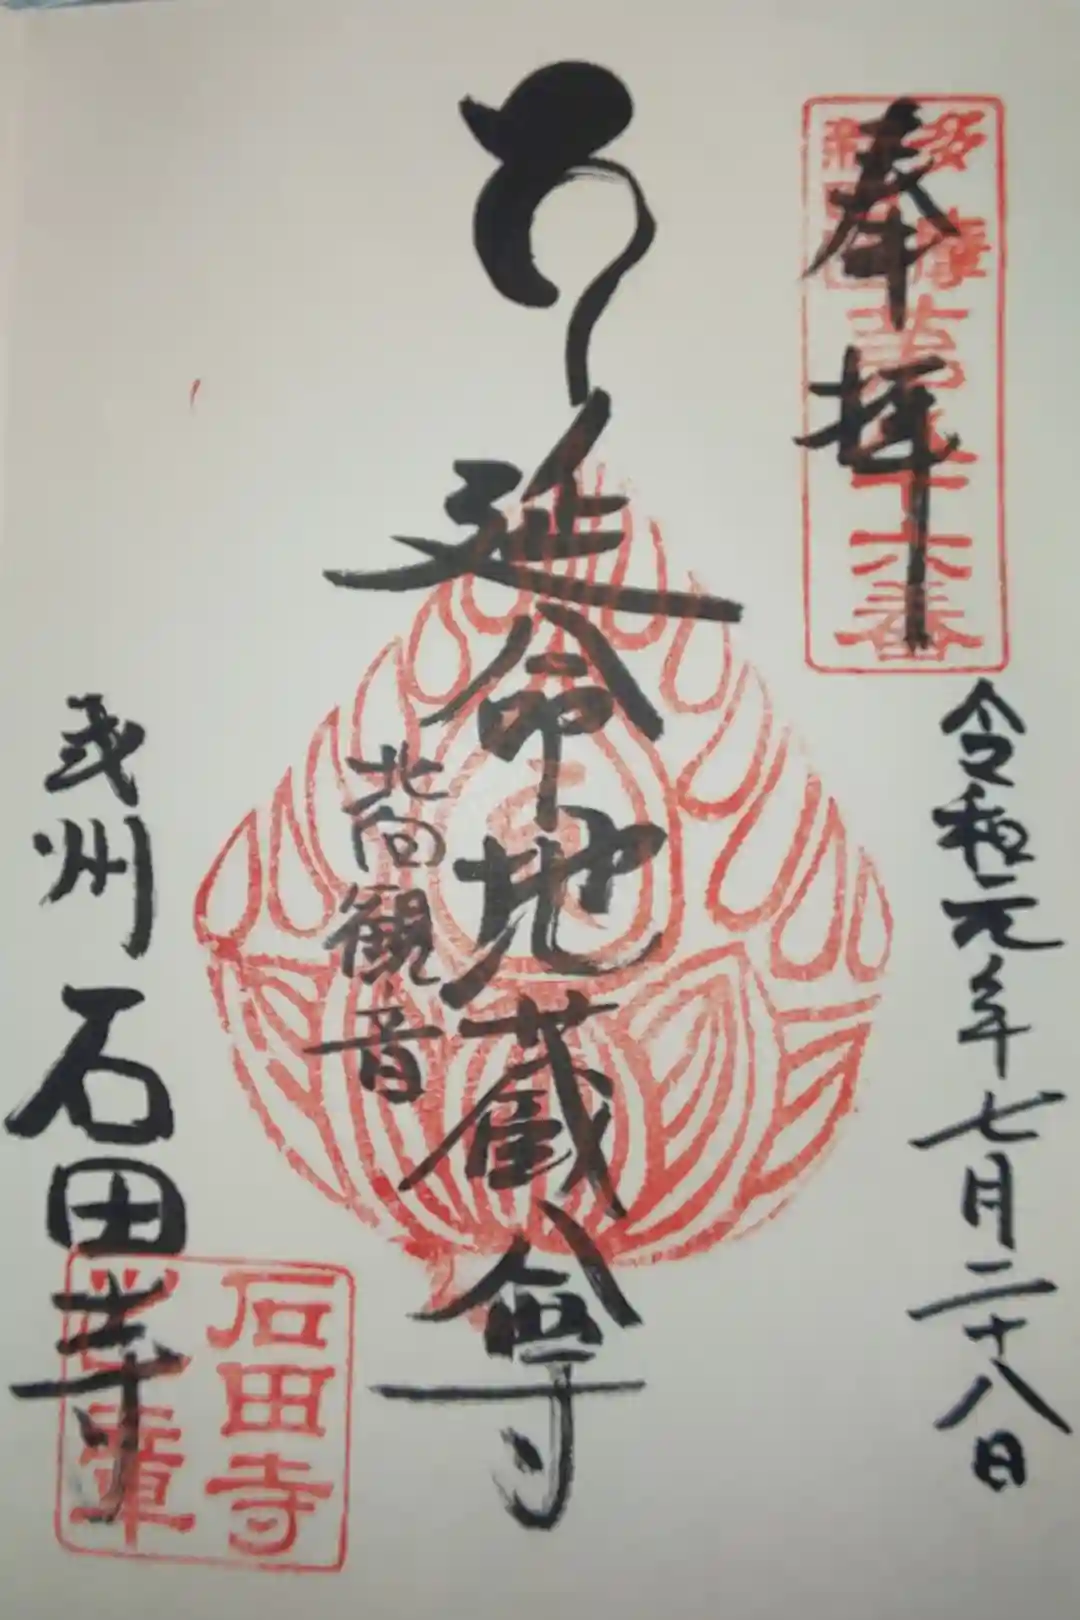 奉拝
多摩
第六十六番
令和元年七月二十八日
延命地蔵尊
北向観音
武州 石田寺
石田寺